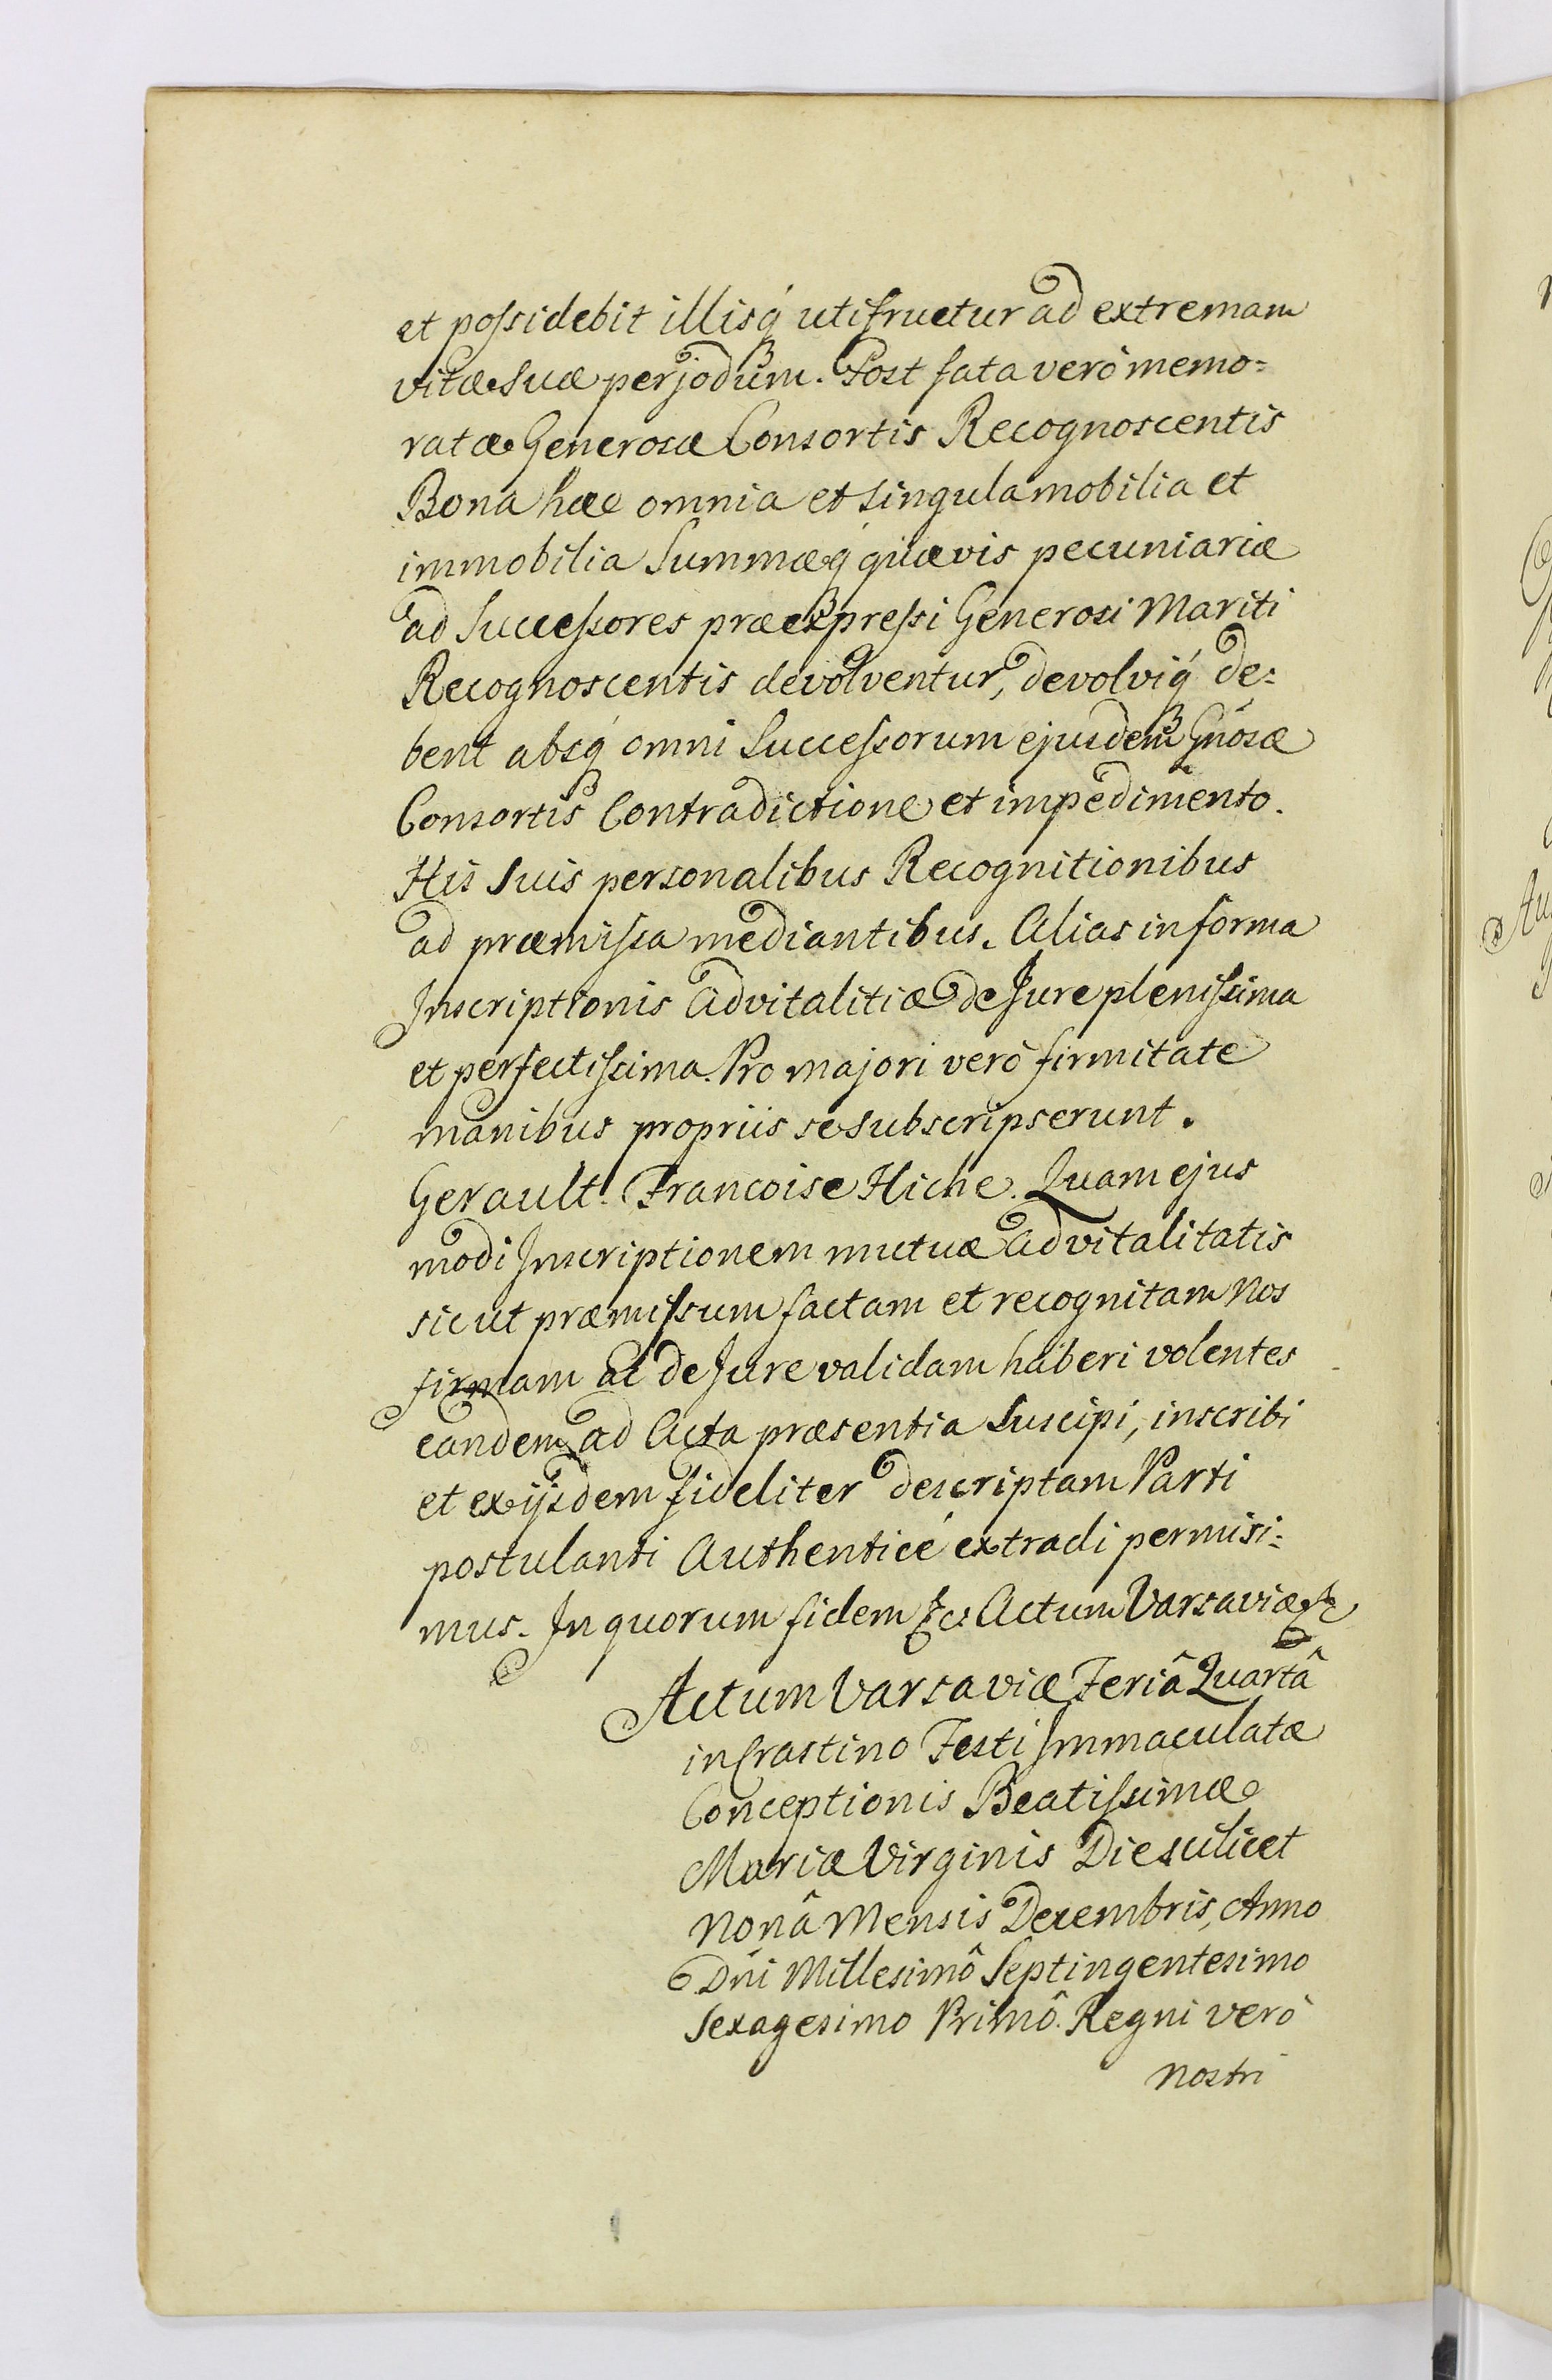 et possidebit illisq́ utifruetur ad extremam
vitæ suæ perjodum. Post fata verò memo=
ratæ Generosæ Consortis Recognoscentis
Bona hæc omnia et singula mobilia et
immobilia Summæq́ quævis pecuniariæ
ad Successores præexpressi Generosi Mariti
Recognoscentis devolventur, devolviq́ de=
bent absq́ omni Successorum ejusdem Gńosæ
Consortis Contradictione et impedimento.
His suis personalibus Recognitionibus
ad præmissa mediantibus. Alias in forma
Inscriptionis Advitalitiæ de Jure plenissima
et perfectissima. Pro majori verò firmitate
manibus propriis se subscripserunt.
Gerault. Francoise Hiche. Quam ejus
modi Inscriptionem mutuæ Advitalitatis
sicut præmissum factam et recognitam Nos
firmam ac de Jure validam haberi volentes
eandem ad Acta præsentia Suscipi, inscribi
et ex ijsdem fideliter descriptam Parti
postulanti Authenticé extradi permisi=
mus. In quorum fidem &c: Actum Varsaviæ
Actum Varsaviæ Feriâ Quartâ
in Crastino Festi Immaculatæ
Conceptionis Beatissimæ
Mariæ Virginis Die scilicet
Nonâ Mensis Decembris, Anno
Dńi Millesimô Septingentesimo
Sexagesimo Primô. Regni verò
nostri